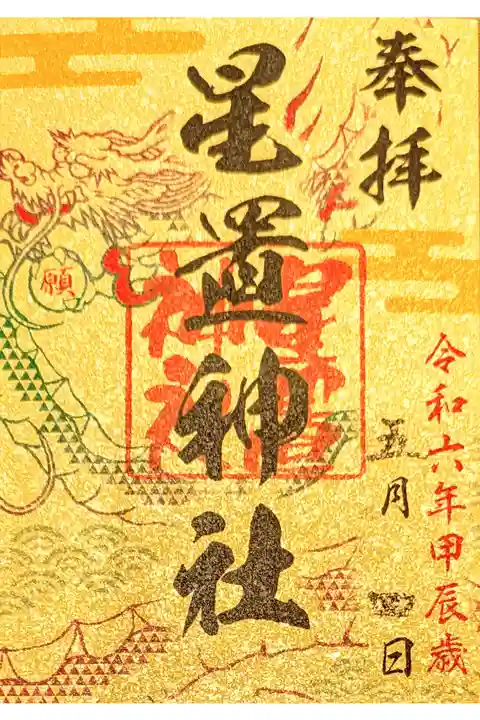 奉拝
令和六年甲辰歳
五月 日
星置神社
星置神社
願